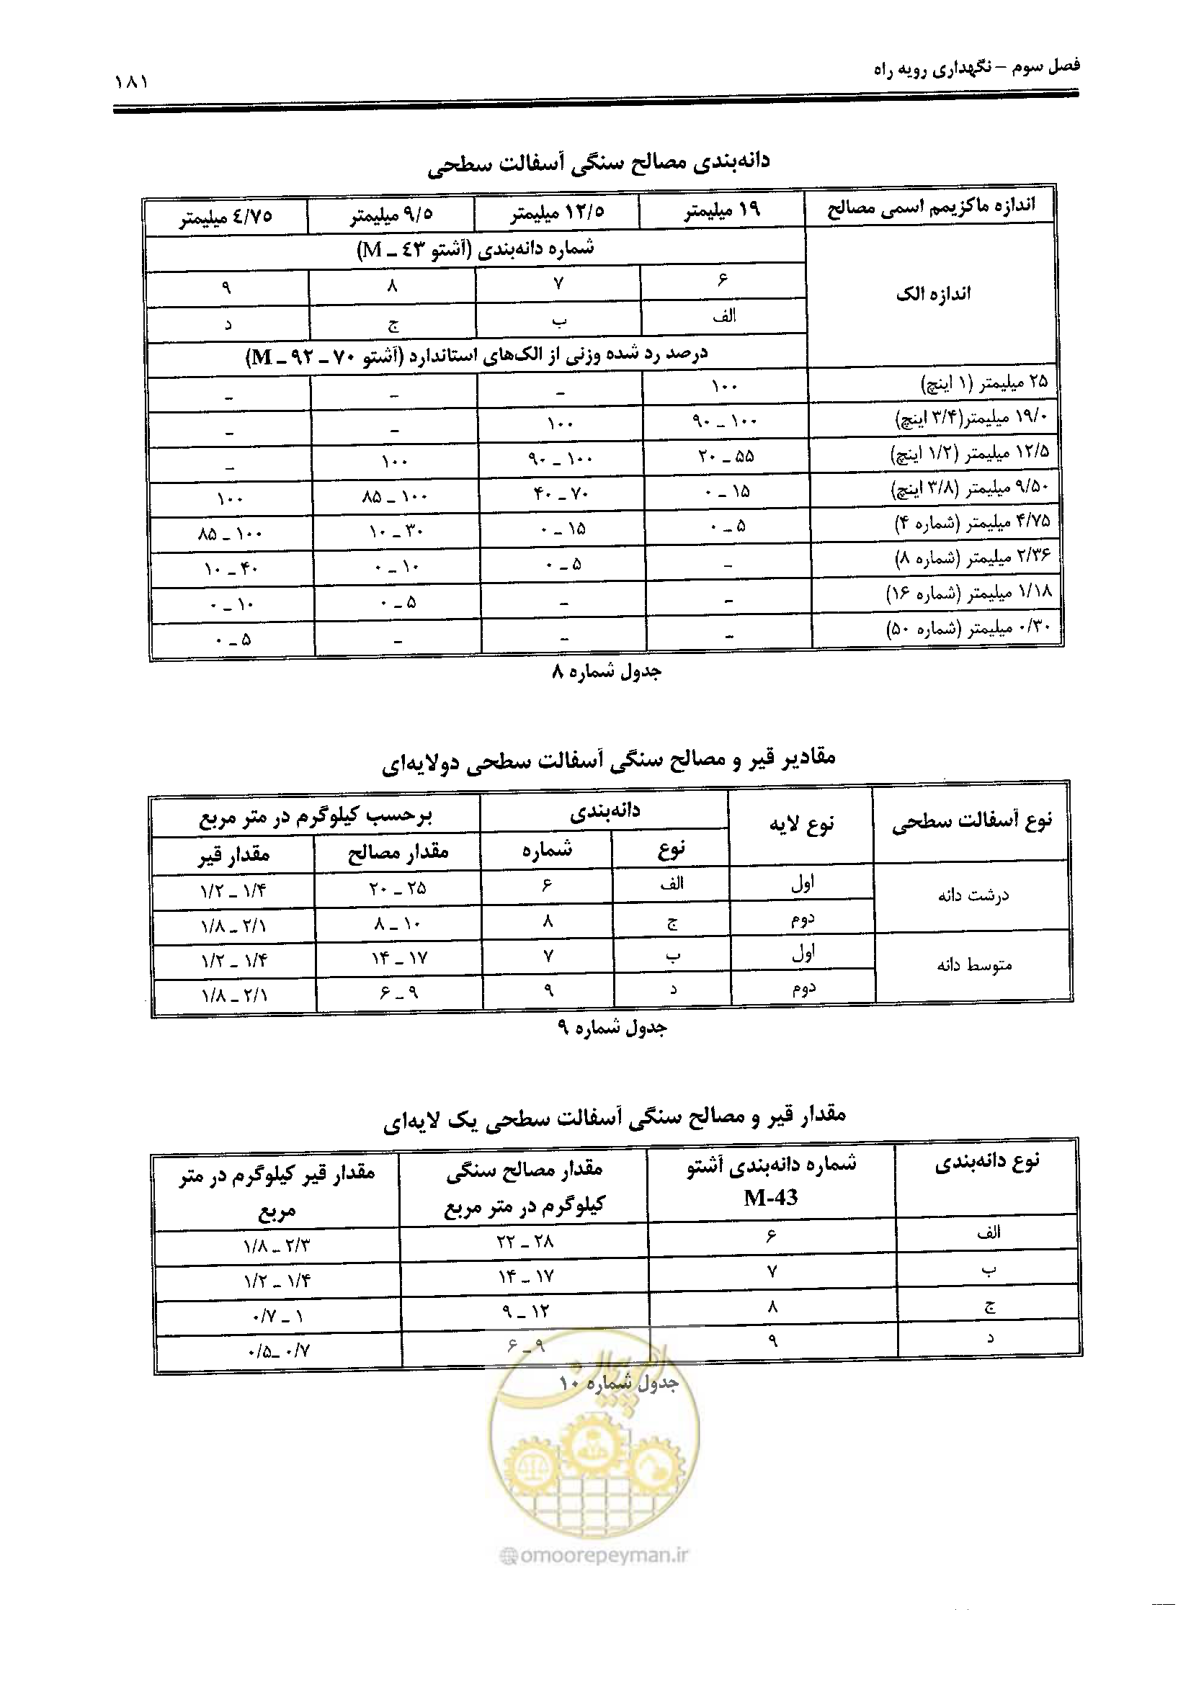 فصل سوم – نگهداری رویه راه
۱۸۱
دانه‌بندی مصالح سنگی آسفالت سطحی
اندازه ماکزیمم اسمی مصالح ۱۹ میلیمتر ۱۲/۵ میلیمتر ۹/۵ میلیمتر ٤/۷۵ میلیمتر
اندازه الک
شماره دانه‌بندی (آشتو ٤۳ ـ M)
۶ ۷ ۸ ۹
الف ب ج د
درصد رد شده وزنی از الک‌های استاندارد (آشتو ۷۰ ـ ۹۲ ـ M)
۲۵ میلیمتر (۱ اینچ) ۱۰۰ – – –
۱۹/۰ میلیمتر(۳/۴ اینچ) ۱۰۰ ـ ۹۰ ۱۰۰ – –
۱۲/۵ میلیمتر (۱/۲ اینچ) ۵۵ ـ ۲۰ ۱۰۰ ـ ۹۰ ۱۰۰ –
۹/۵۰ میلیمتر (۳/۸ اینچ) ۱۵ ـ ۰ ۷۰ ـ ۴۰ ۱۰۰ ـ ۸۵ ۱۰۰
۴/۷۵ میلیمتر (شماره ۴) ۵ ـ ۰ ۱۵ ـ ۰ ۳۰ ـ ۱۰ ۱۰۰ ـ ۸۵
۲/۳۶ میلیمتر (شماره ۸) – ۵ ـ ۰ ۱۰ ـ ۰ ۴۰ ـ ۱۰
۱/۱۸ میلیمتر (شماره ۱۶) – – ۵ ـ ۰ ۱۰ ـ ۰
۰/۳۰ میلیمتر (شماره ۵۰) – – – ۵ ـ ۰
جدول شماره ۸
مقادیر قیر و مصالح سنگی آسفالت سطحی دولایه‌ای
نوع آسفالت سطحی نوع لایه دانه‌بندی برحسب کیلوگرم در متر مربع
نوع شماره مقدار مصالح مقدار قیر
درشت دانه اول الف ۶ ۲۵ ـ ۲۰ ۱/۴ ـ ۱/۲
دوم ج ۸ ۱۰ ـ ۸ ۲/۱ ـ ۱/۸
متوسط دانه اول ب ۷ ۱۷ ـ ۱۴ ۱/۴ ـ ۱/۲
دوم د ۹ ۹ ـ ۶ ۲/۱ ـ ۱/۸
جدول شماره ۹
مقدار قیر و مصالح سنگی آسفالت سطحی یک لایه‌ای
نوع دانه‌بندی شماره دانه‌بندی آشتو مقدار مصالح سنگی مقدار قیر کیلوگرم در متر
M-43 کیلوگرم در متر مربع مربع
الف ۶ ۲۸ ـ ۲۲ ۲/۳ ـ ۱/۸
ب ۷ ۱۷ ـ ۱۴ ۱/۴ ـ ۱/۲
ج ۸ ۱۲ ـ ۹ ۱ ـ ۰/۷
د ۹ ۹ ـ ۶ ۰/۷ ـ ۰/۵
جدول شماره ۱۰
امور پیمان
@omoorepeyman.ir